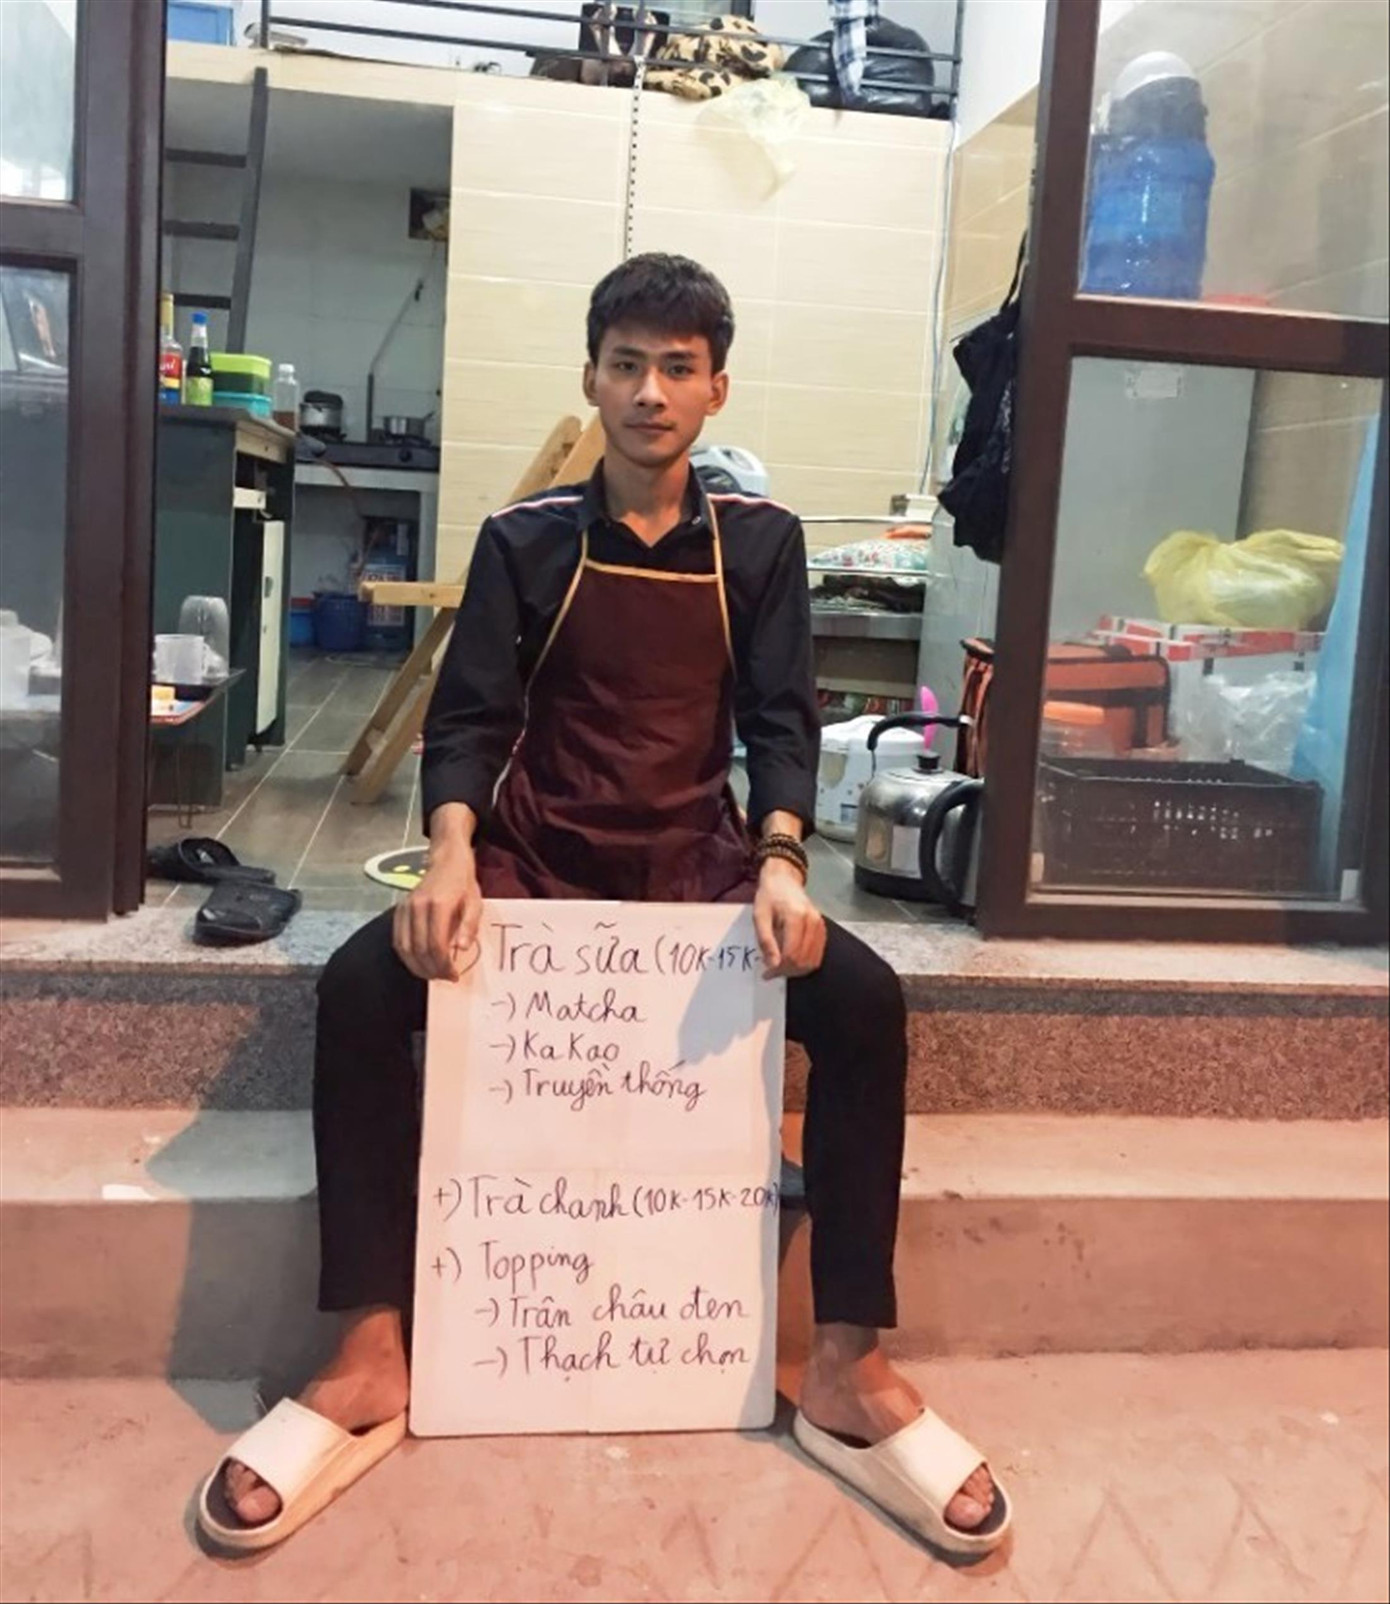 +) Trà sữa (10K-15K-
-) Matcha
-) KaKao
-) Truyền thống
+) Trà chanh (10K-15K-20K)
+) Topping
-) Trân châu đen
-) Thạch tự chọn